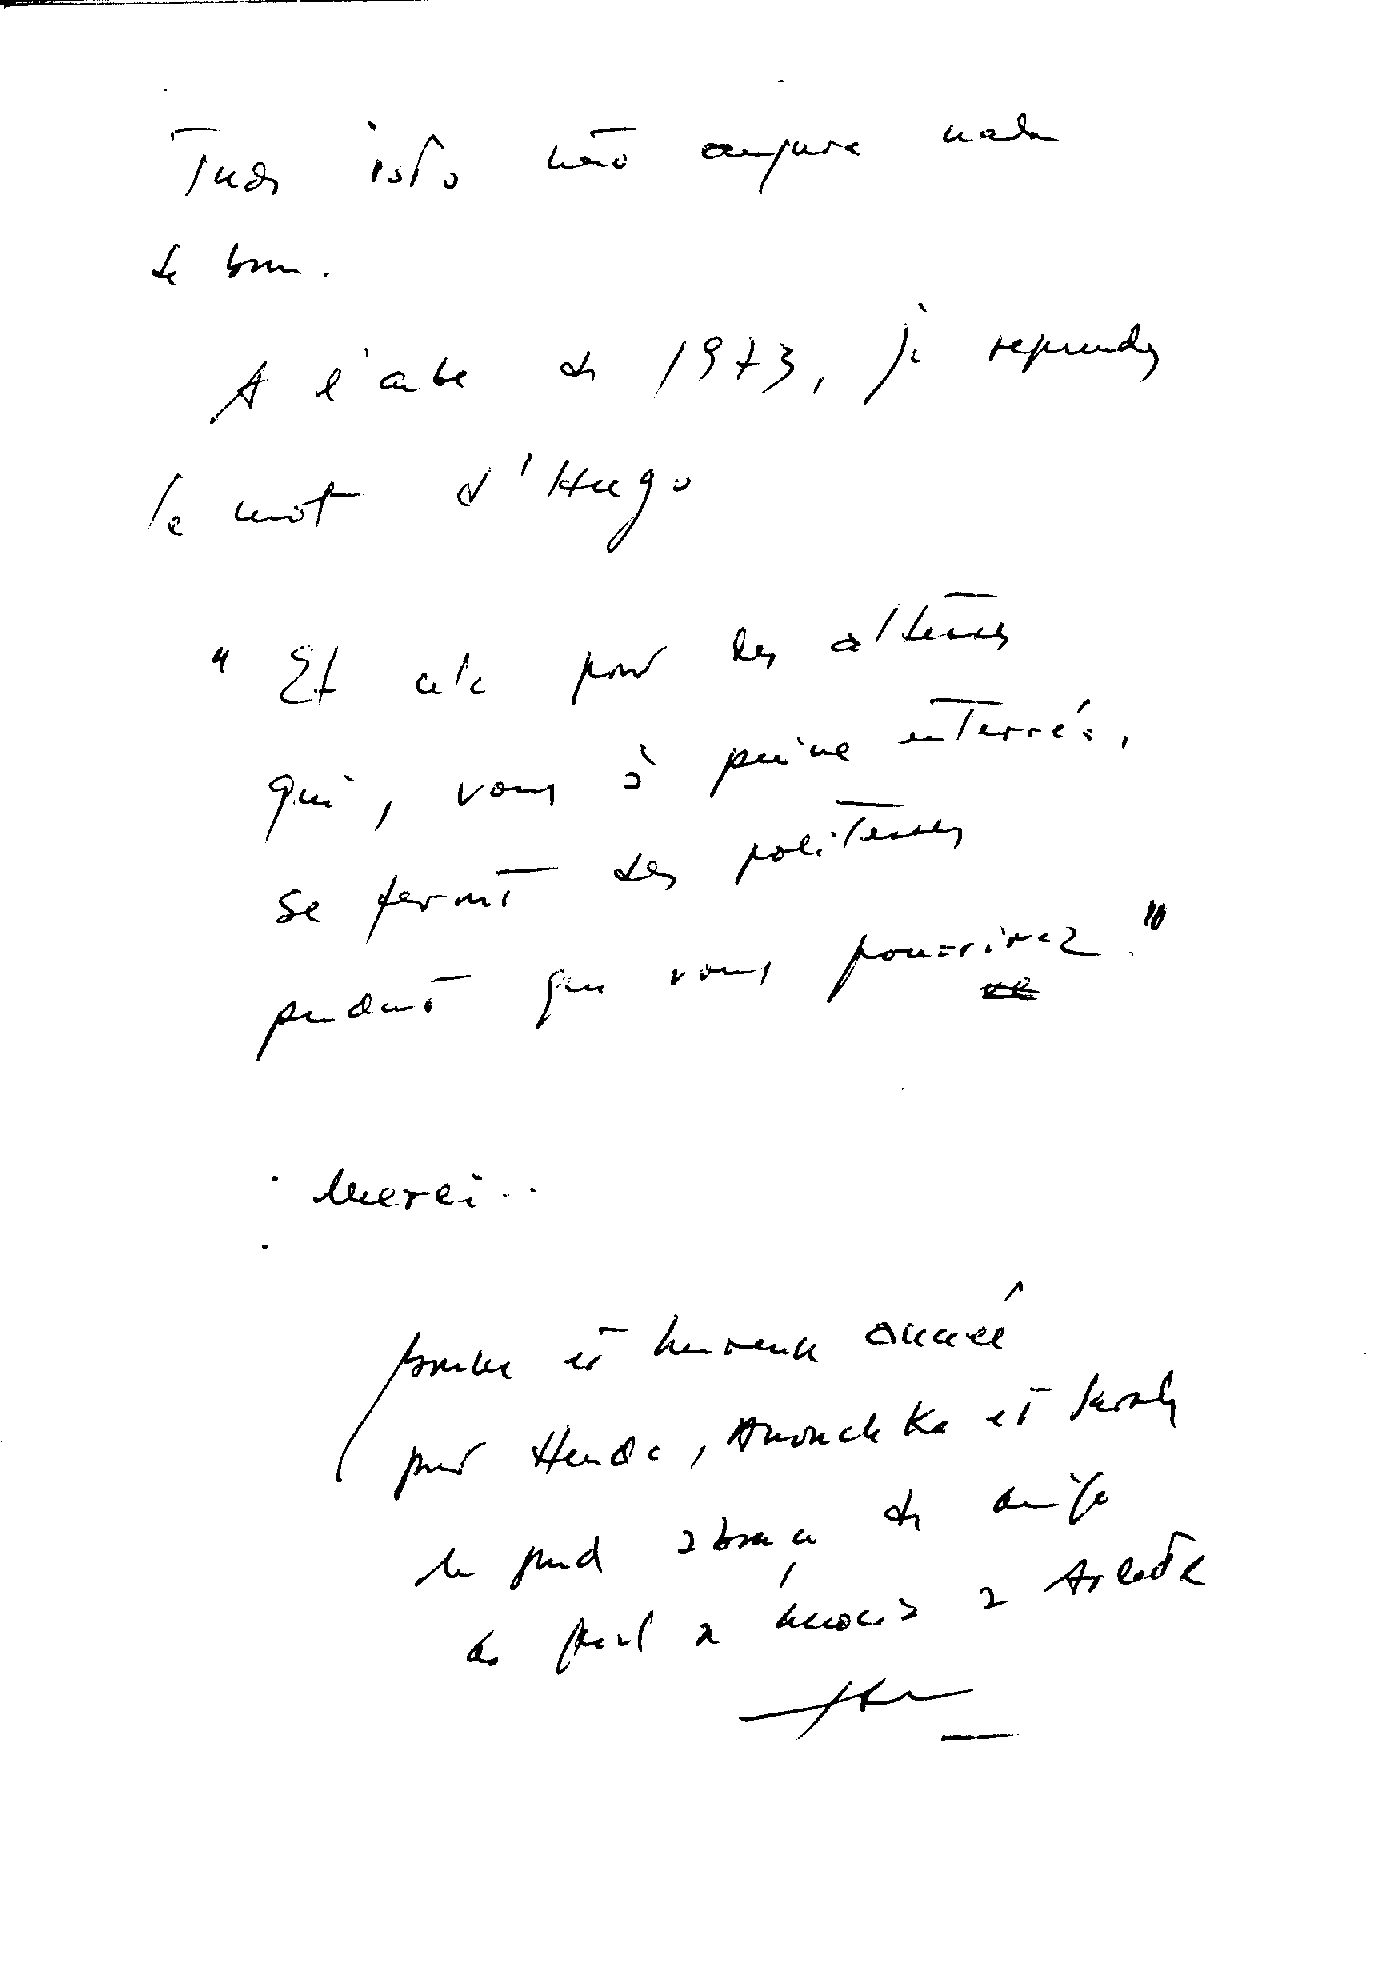 Tudo isto não augura nada
de bom.
A l'aube de 1973, je reprends
le mot d'Hugo
"Et cela pour des altesses
qui, vous à peine enterrés,
se feront des politesses
pendant que vous pourrirez."
Merci..
bonne et heureuse année
pour Henda, Anouchka et Sarah
un grand abraço de amigo
do